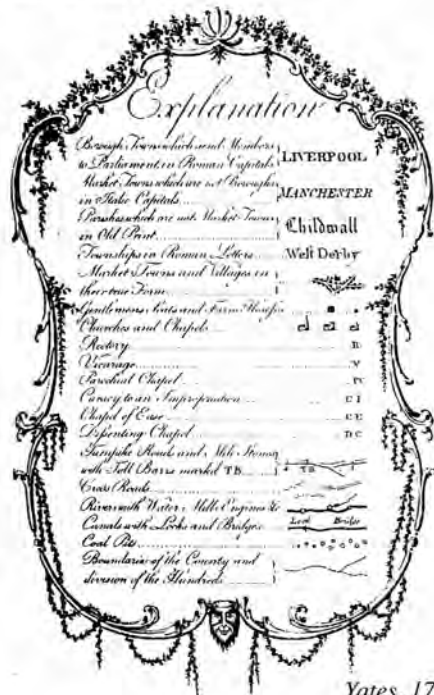 Explanation
Borough Towns which send Members
to Parliament, in Roman Capitals LIVERPOOL
Market Towns which are not Boroughs
in Italic Capitals MANCHESTER
Parishes which are not Market Towns
in Old Print Childwall
Townships in Roman Letters West Derby
Market Towns and Villages in
their true Form
Gentlemens Seats and Farm Houses
Churches and Chapels
Rectory R
Vicarage V
Parochial Chapel PC
Curacy to an Impropriation CI
Chapel of Ease CE
Dissenting Chapel DC
Turnpike Roads and Mile Stones
with Toll Barrs marked TB TB
Cross Roads
Rivers with Water Mills Engines &c
Canals with Locks and Bridges Lock Bridge
Coal Pits
Boundaries of the County and
division of the Hundreds
Yates, 17